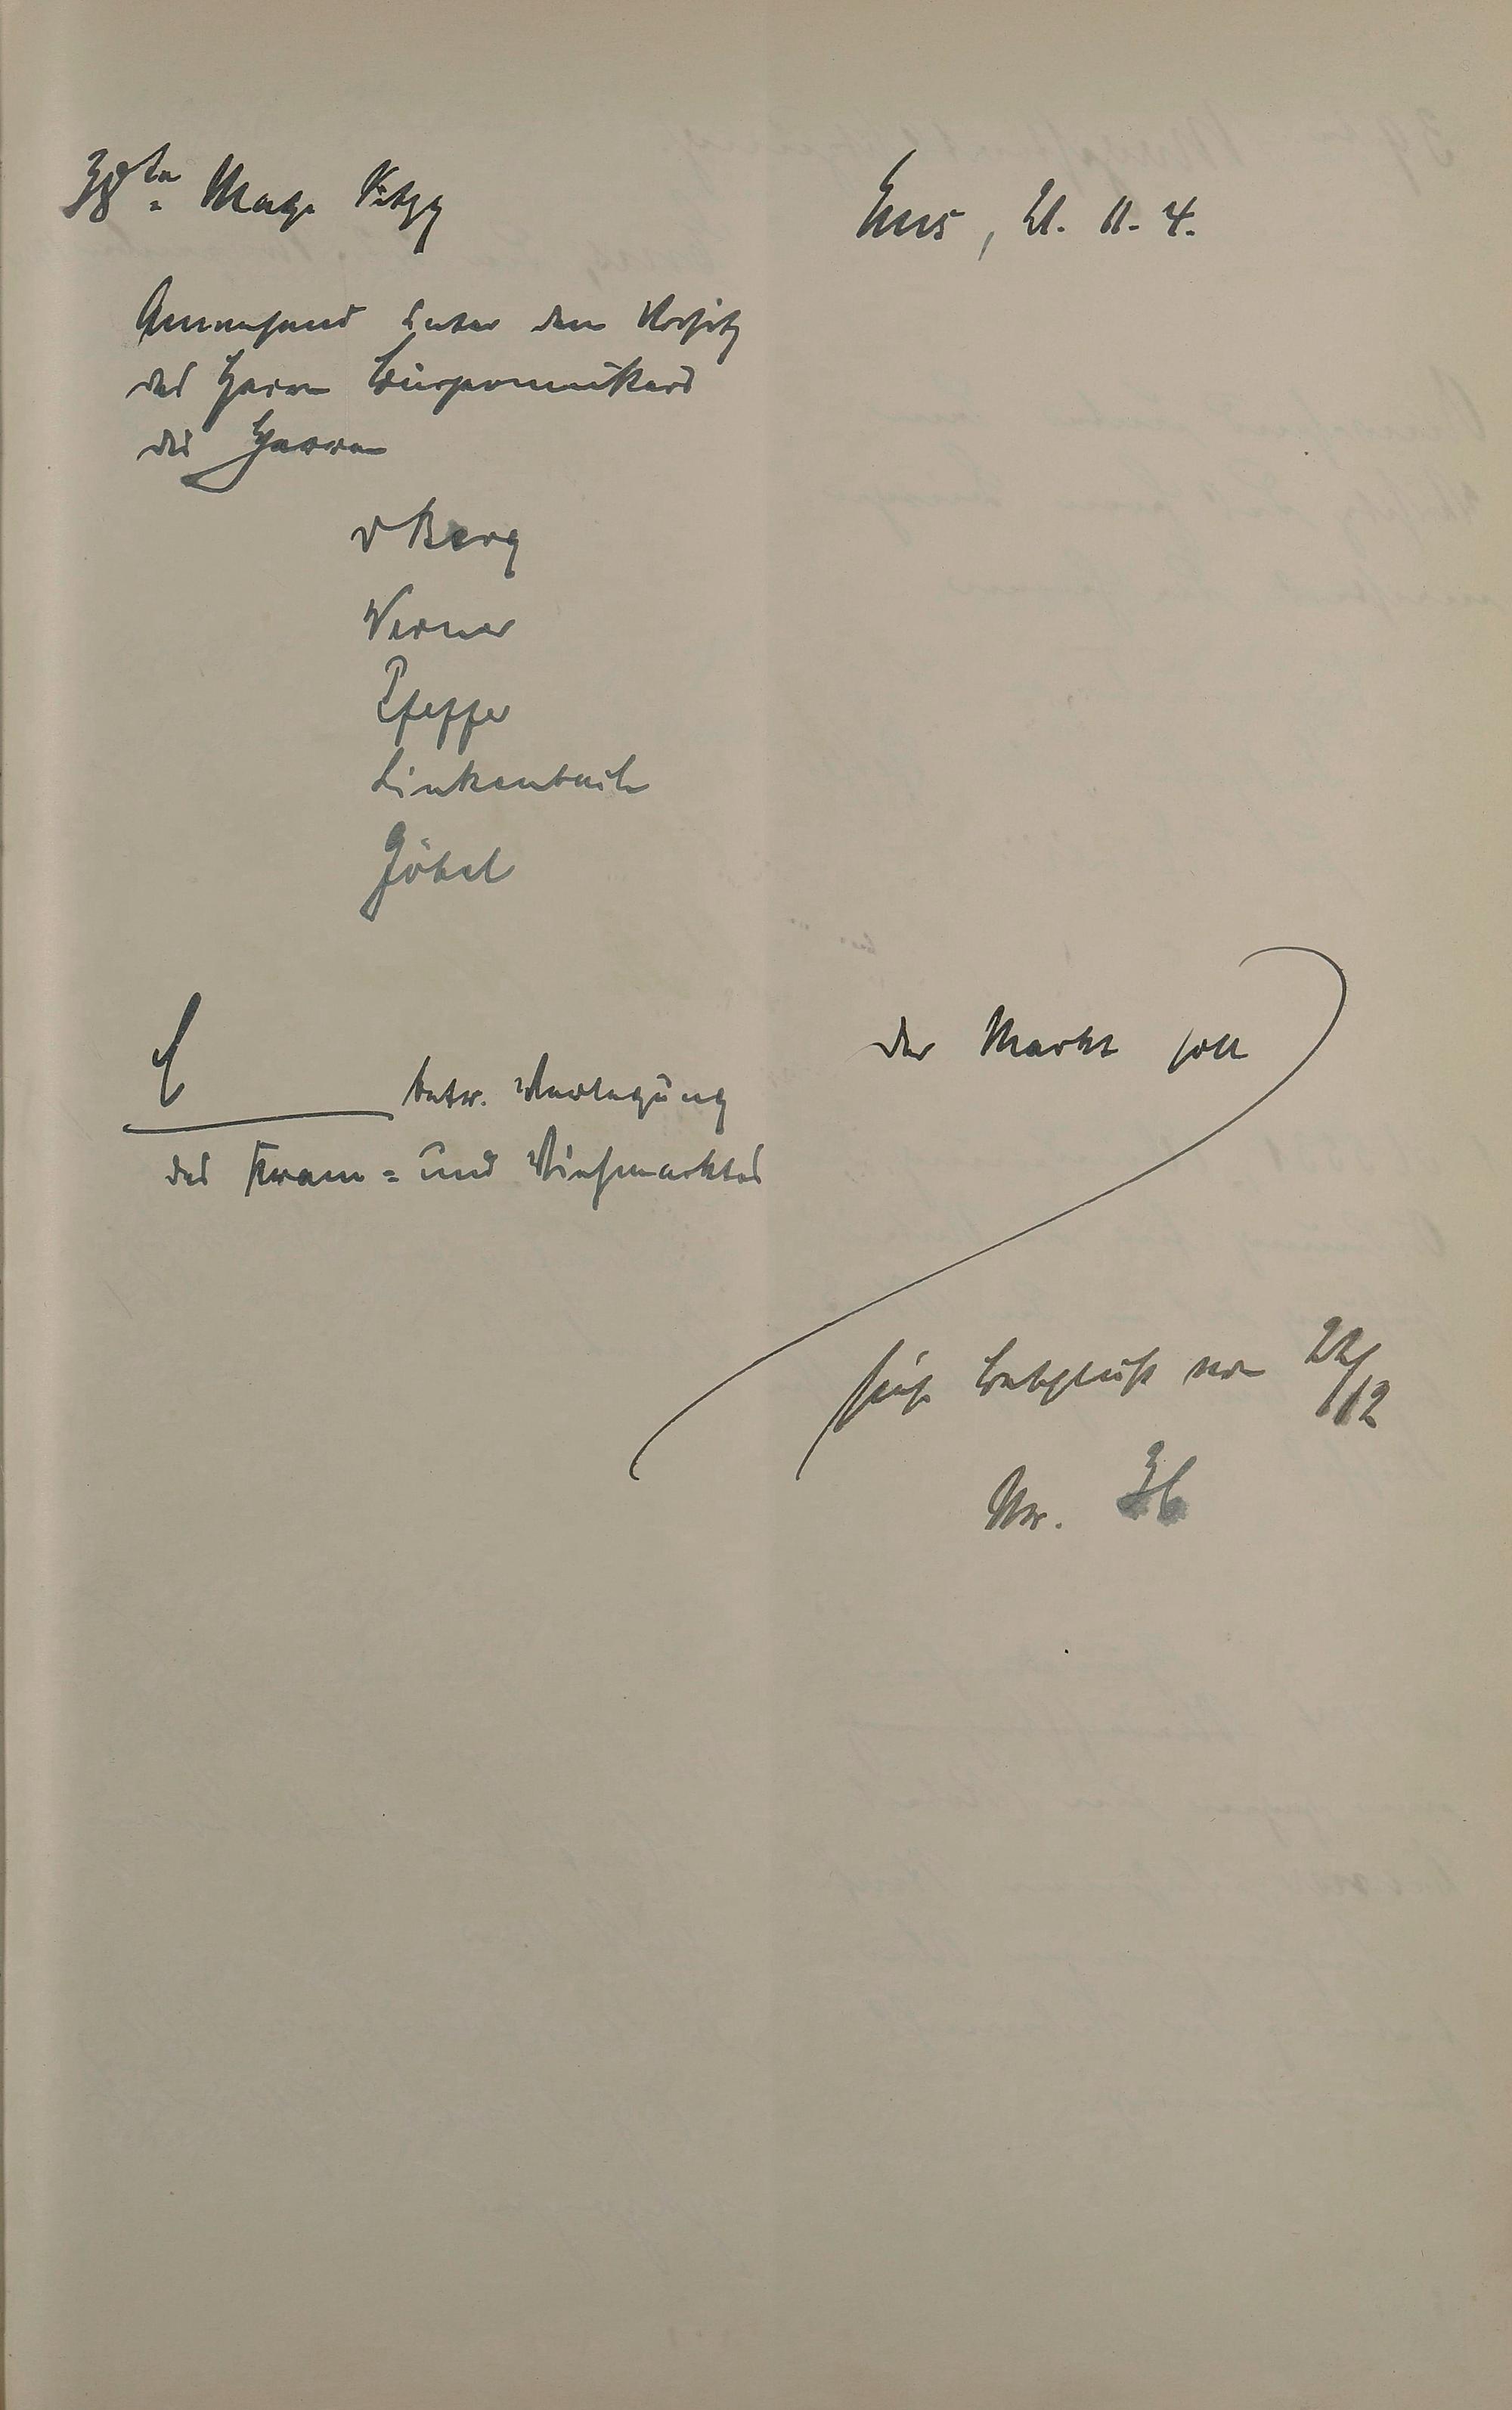 38te Mag. Sitzg
Ems, 21. 11. 4.
Anwesend unter dem Vorsitz
des Herrn Bürgermeisters
die Herren
v Berg
Werner
Pfeffer
Linkenbach
Göbel
Der Markt soll
betr. Verlegung
des Kram- und Viehmarktes
siehe Beschluß vom 22/12
Nr. 36